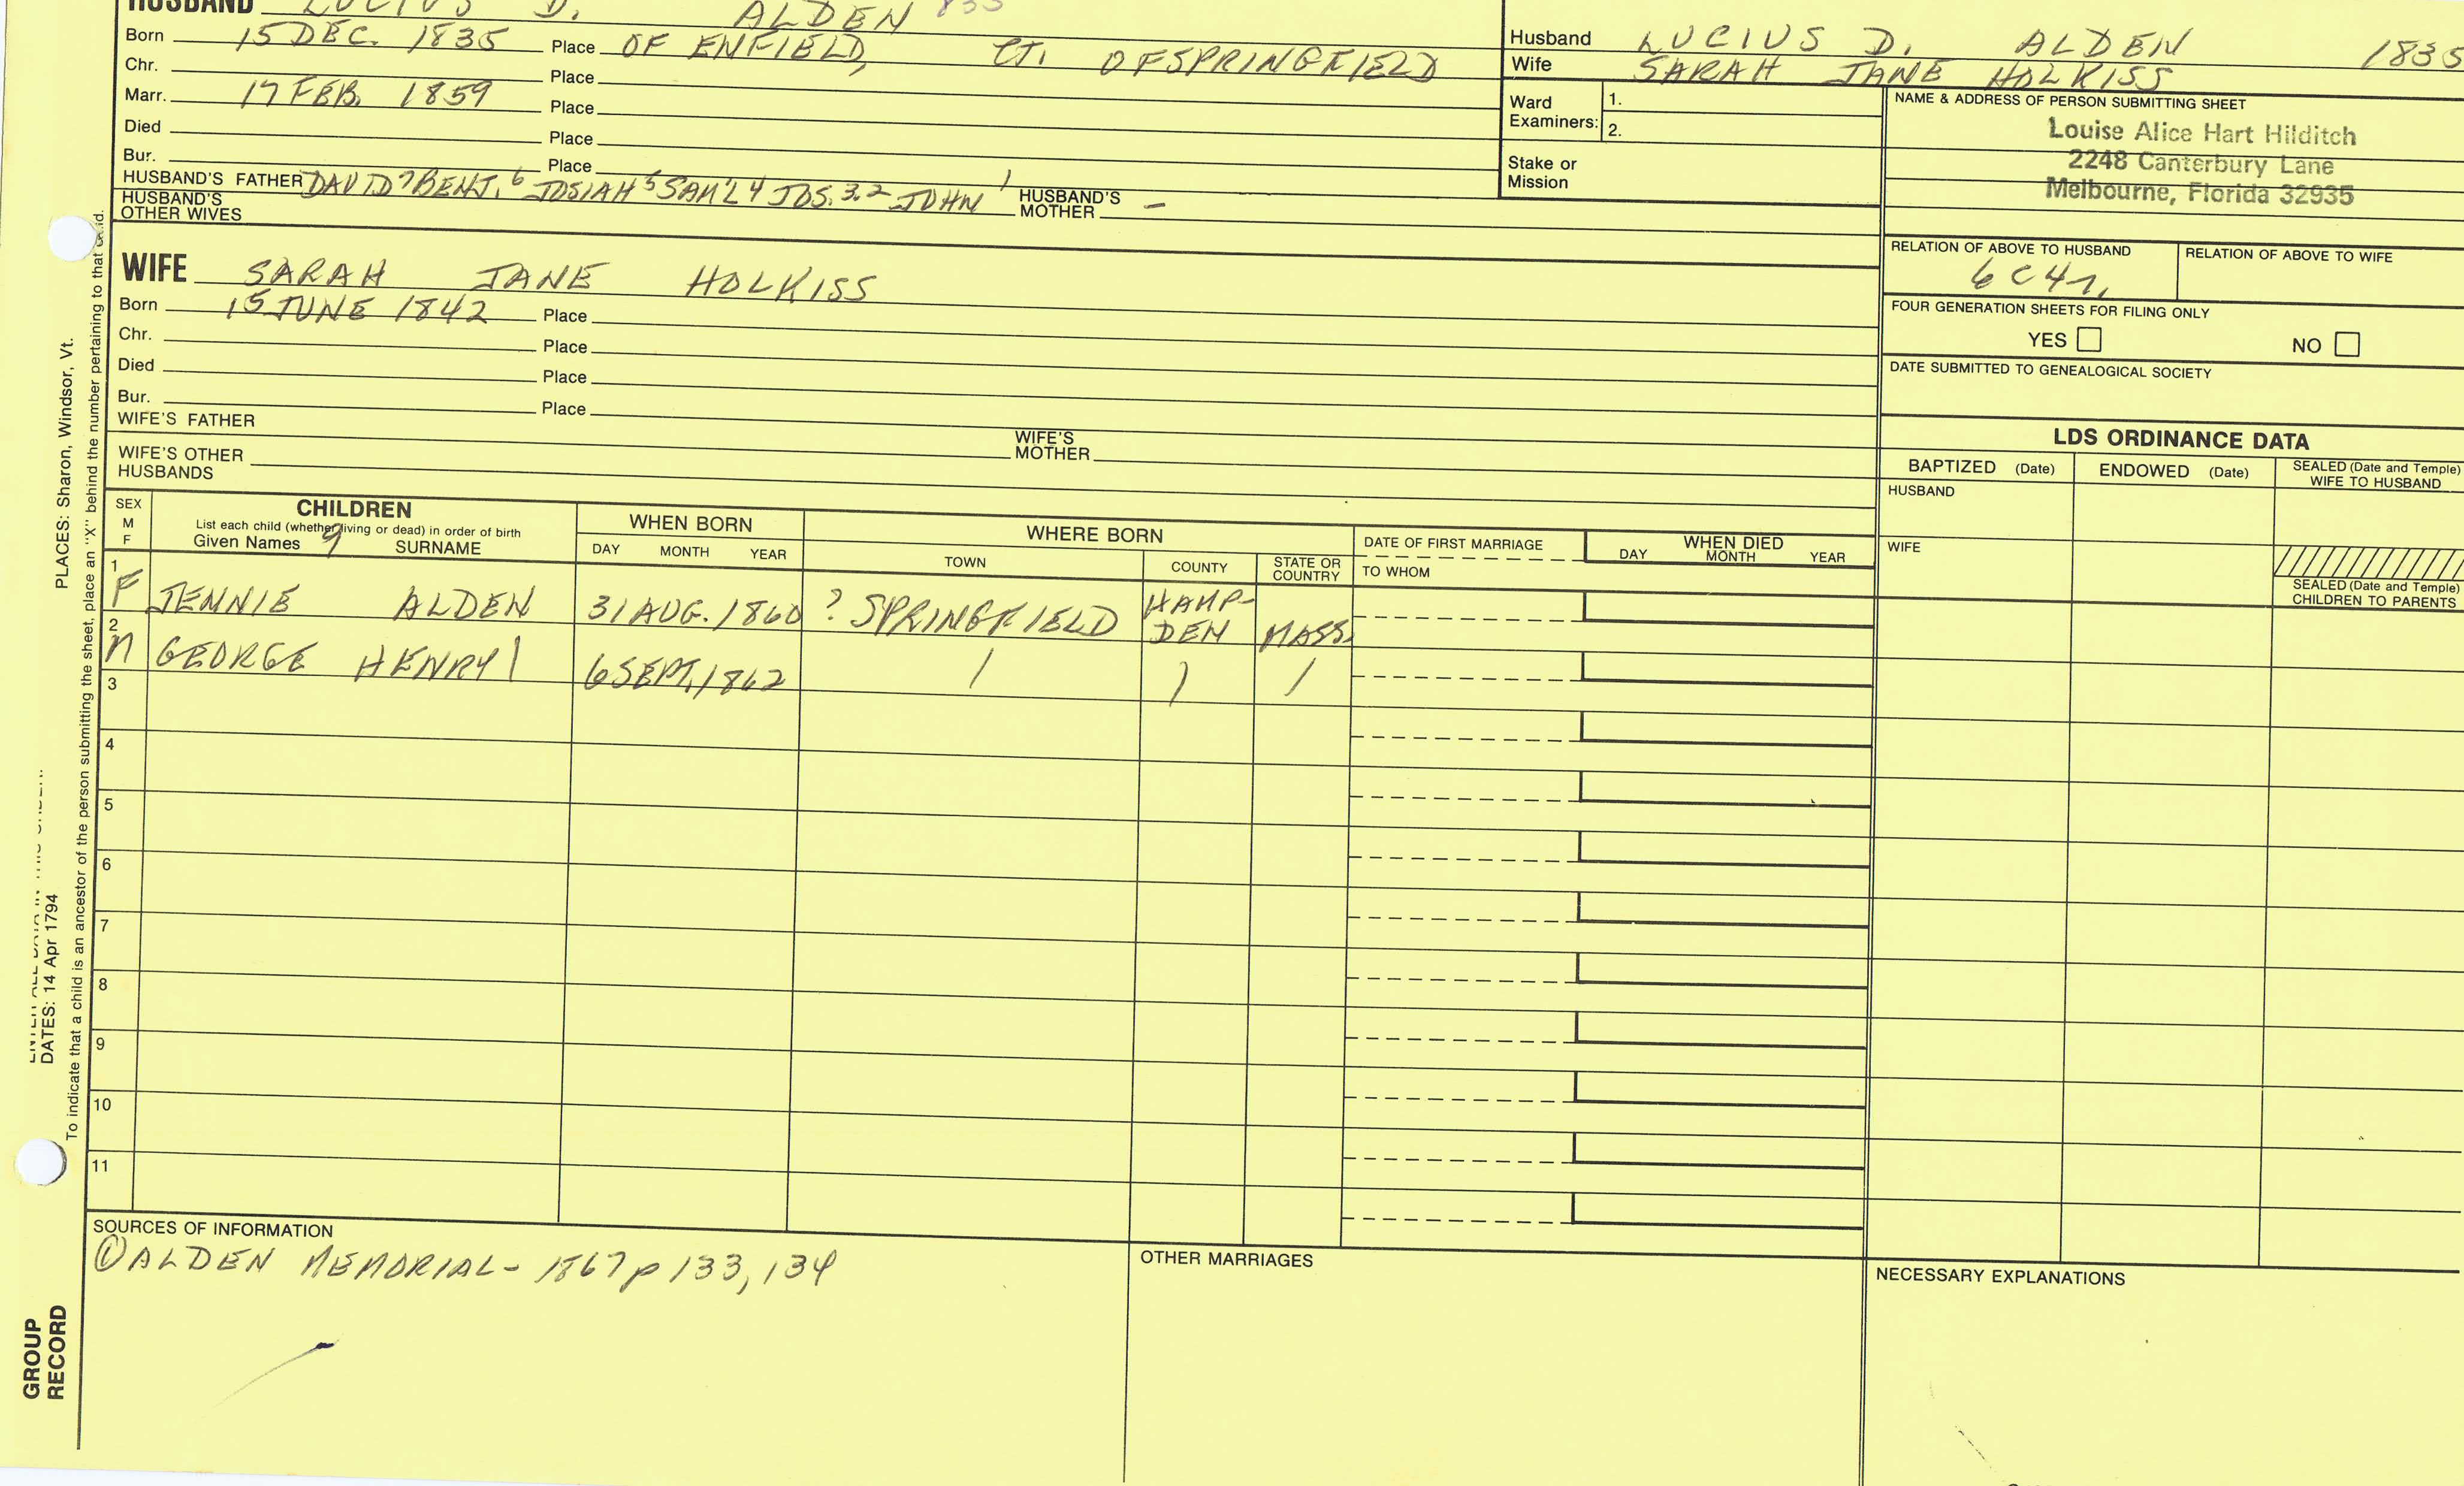 HUSBAND LUCIUS D. ALDEN 835
Born 15 DEC. 1835 Place OF ENFIELD, CT. OFSPRINGFIELD
Chr. Place
Marr. 17 FEB. 1859 Place
Died Place
Bur. Place
HUSBAND'S FATHER DAVID 7 BENJ. 6 JOSIAH 5 SAM'L 4 JOS. 3.2 JOHN 1 HUSBAND'S MOTHER –
HUSBAND'S OTHER WIVES
Husband LUCIUS D. ALDEN 1835
Wife SARAH JANE HOLKISS
Ward Examiners: 1.
2.
Stake or Mission
NAME & ADDRESS OF PERSON SUBMITTING SHEET
Louise Alice Hart Hilditch
2248 Canterbury Lane
Melbourne, Florida 32935
WIFE SARAH JANE HOLKISS
Born 15 JUNE 1842 Place
Chr. Place
Died Place
Bur. Place
WIFE'S FATHER WIFE'S MOTHER
WIFE'S OTHER HUSBANDS
RELATION OF ABOVE TO HUSBAND RELATION OF ABOVE TO WIFE
6 C 4 r,
FOUR GENERATION SHEETS FOR FILING ONLY
YES NO
DATE SUBMITTED TO GENEALOGICAL SOCIETY
LDS ORDINANCE DATA
BAPTIZED (Date) ENDOWED (Date) SEALED (Date and Temple) WIFE TO HUSBAND
HUSBAND
WIFE
SEALED (Date and Temple) CHILDREN TO PARENTS
SEX M F
CHILDREN
List each child (whether living or dead) in order of birth
Given Names 9 SURNAME
WHEN BORN
DAY MONTH YEAR
WHERE BORN
TOWN COUNTY STATE OR COUNTRY
DATE OF FIRST MARRIAGE
TO WHOM
WHEN DIED
DAY MONTH YEAR
1 F JENNIE ALDEN 31 AUG. 1860 ? SPRINGFIELD HAMP-DEN MASS.
2 M GEORGE HENRY | 6 SEPT. 1862 | | |
3
4
5
6
7
8
9
10
11
SOURCES OF INFORMATION
① ALDEN MEMORIAL - 1867 p 133, 134
OTHER MARRIAGES
NECESSARY EXPLANATIONS
PLACES: Sharon, Windsor, Vt.
DATES: 14 Apr 1794
To indicate that a child is an ancestor of the person submitting the sheet, place an "X" behind the number pertaining to that child.
GROUP RECORD